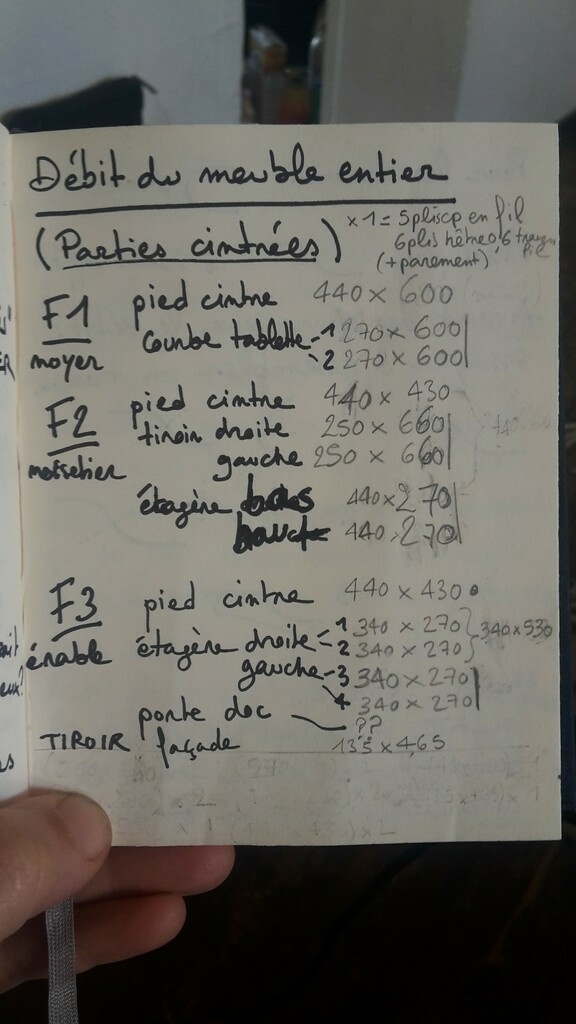 Débit du meuble entier
(Parties cintrées)
x 1 = 5 plis cp en fil
6 plis hêtre
(+ parement)
F1 pied cintre 440 x 600
noyer courbe tablette - 1 270 x 600
2 270 x 600
F2 pied cintre 440 x 430
noisetier tiroir droite 250 x 660
gauche 250 x 660
étagère bas 440 x 270
haut 440 x 270
F3 pied cintre 440 x 430
érable étagère droite 1 340 x 270 340 x 530
2 340 x 270
gauche - 3 340 x 270
4 340 x 270
porte doc ??
TIROIR façade 135 x 465